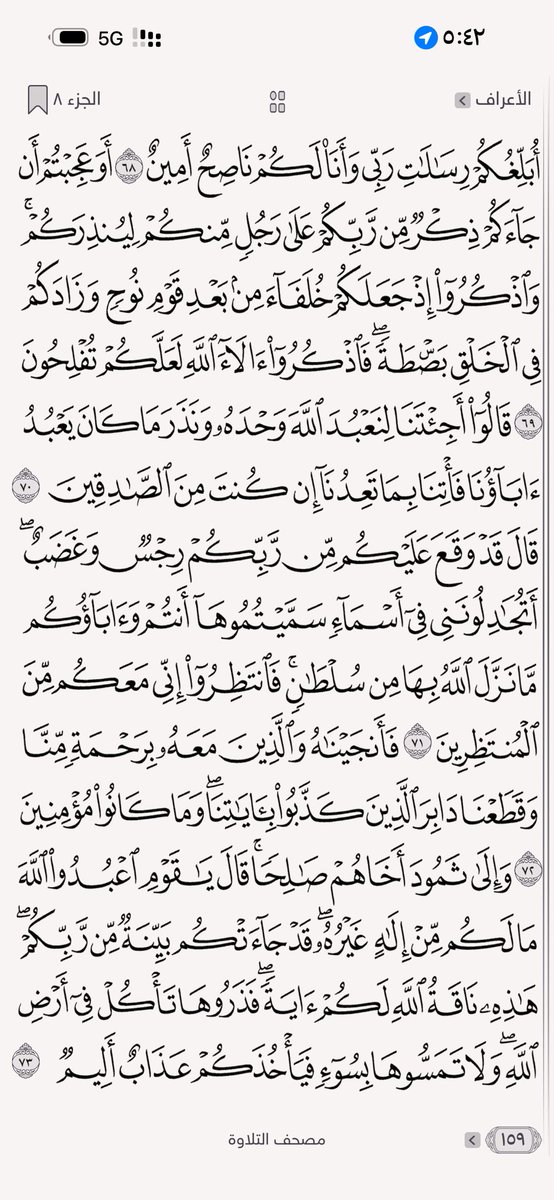 ٥:٤٢ 5G
الأعراف الجزء ٨
أُبَلِّغُكُمۡ رِسَٰلَٰتِ رَبِّي وَأَنَا۠ لَكُمۡ نَاصِحٌ أَمِينٌ ٦٨ أَوَعَجِبۡتُمۡ أَن
جَآءَكُمۡ ذِكۡرٞ مِّن رَّبِّكُمۡ عَلَىٰ رَجُلٖ مِّنكُمۡ لِيُنذِرَكُمۡۚ
وَٱذۡكُرُوٓاْ إِذۡ جَعَلَكُمۡ خُلَفَآءَ مِنۢ بَعۡدِ قَوۡمِ نُوحٖ وَزَادَكُمۡ
فِي ٱلۡخَلۡقِ بَصۜۡطَةٗۖ فَٱذۡكُرُوٓاْ ءَالَآءَ ٱللَّهِ لَعَلَّكُمۡ تُفۡلِحُونَ
٦٩ قَالُوٓاْ أَجِئۡتَنَا لِنَعۡبُدَ ٱللَّهَ وَحۡدَهُۥ وَنَذَرَ مَا كَانَ يَعۡبُدُ
ءَابَآؤُنَا فَأۡتِنَا بِمَا تَعِدُنَآ إِن كُنتَ مِنَ ٱلصَّٰدِقِينَ ٧٠
قَالَ قَدۡ وَقَعَ عَلَيۡكُم مِّن رَّبِّكُمۡ رِجۡسٞ وَغَضَبٌۖ
أَتُجَٰدِلُونَنِي فِيٓ أَسۡمَآءٖ سَمَّيۡتُمُوهَآ أَنتُمۡ وَءَابَآؤُكُم
مَّا نَزَّلَ ٱللَّهُ بِهَا مِن سُلۡطَٰنٖۚ فَٱنتَظِرُوٓاْ إِنِّي مَعَكُم مِّنَ
ٱلۡمُنتَظِرِينَ ٧١ فَأَنجَيۡنَٰهُ وَٱلَّذِينَ مَعَهُۥ بِرَحۡمَةٖ مِّنَّا
وَقَطَعۡنَا دَابِرَ ٱلَّذِينَ كَذَّبُواْ بِـَٔايَٰتِنَاۖ وَمَا كَانُواْ مُؤۡمِنِينَ
٧٢ وَإِلَىٰ ثَمُودَ أَخَاهُمۡ صَٰلِحٗاۚ قَالَ يَٰقَوۡمِ ٱعۡبُدُواْ ٱللَّهَ
مَا لَكُم مِّنۡ إِلَٰهٍ غَيۡرُهُۥۖ قَدۡ جَآءَتۡكُم بَيِّنَةٞ مِّن رَّبِّكُمۡۖ
هَٰذِهِۦ نَاقَةُ ٱللَّهِ لَكُمۡ ءَايَةٗۖ فَذَرُوهَا تَأۡكُلۡ فِيٓ أَرۡضِ
ٱللَّهِۖ وَلَا تَمَسُّوهَا بِسُوٓءٖ فَيَأۡخُذَكُمۡ عَذَابٌ أَلِيمٞ ٧٣
١٥٩ مصحف التلاوة